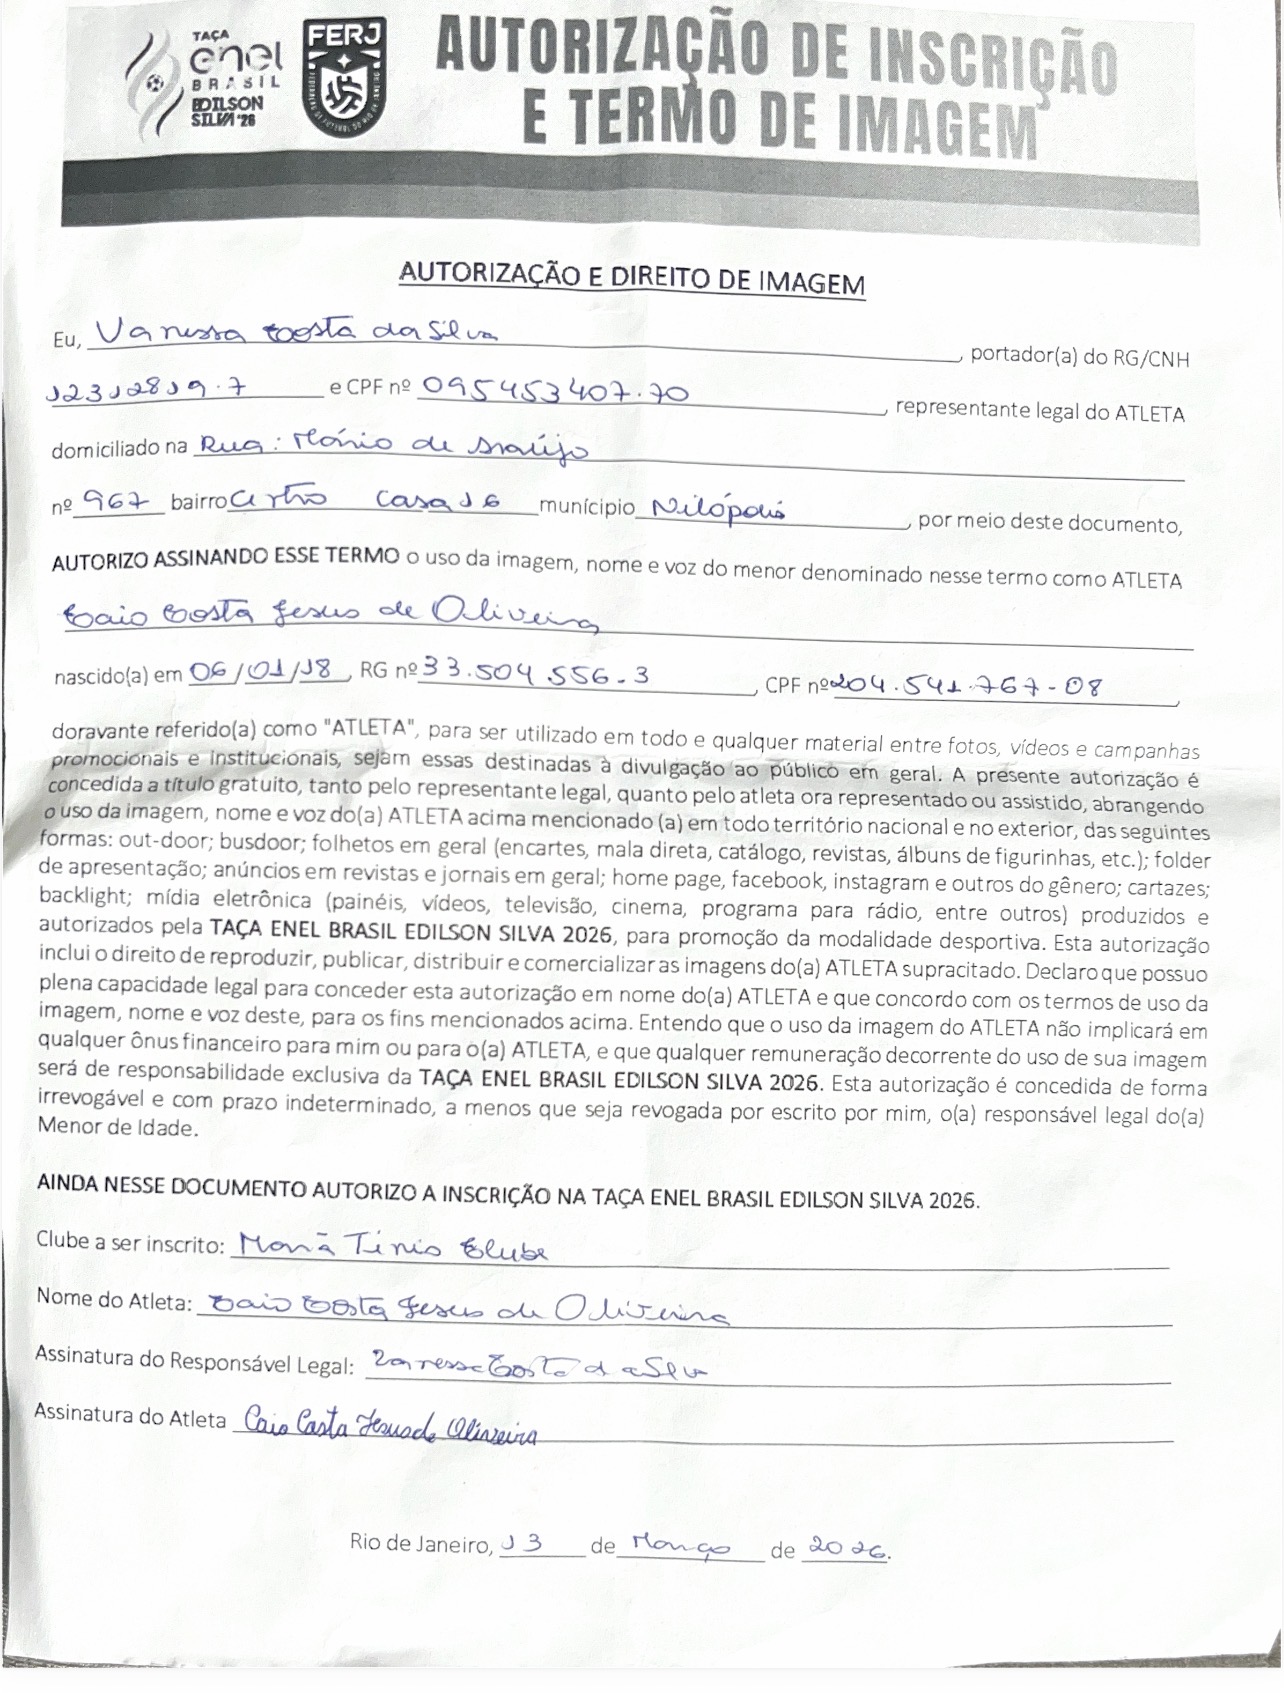 TAÇA
enel
BRASIL
EDILSON
SILVA '26
FERJ
FEDERAÇÃO DE FUTEBOL DO RIO DE JANEIRO
AUTORIZAÇÃO DE INSCRIÇÃO
E TERMO DE IMAGEM
AUTORIZAÇÃO E DIREITO DE IMAGEM
Eu, Vanessa Costa da Silva, portador(a) do RG/CNH
12312819.7 e CPF nº 095453407.70, representante legal do ATLETA
domiciliado na Rua: Mário de Araújo
nº 967 bairro Centro Casa 16 munícipio Nilópolis, por meio deste documento,
AUTORIZO ASSINANDO ESSE TERMO o uso da imagem, nome e voz do menor denominado nesse termo como ATLETA
Caio Costa Jesus de Oliveira
nascido(a) em 06/01/18, RG nº 33.504.556-3, CPF nº 204.541.767-08,
doravante referido(a) como "ATLETA", para ser utilizado em todo e qualquer material entre fotos, vídeos e campanhas
promocionais e institucionais, sejam essas destinadas à divulgação ao público em geral. A presente autorização é
concedida a título gratuito, tanto pelo representante legal, quanto pelo atleta ora representado ou assistido, abrangendo
o uso da imagem, nome e voz do(a) ATLETA acima mencionado (a) em todo território nacional e no exterior, das seguintes
formas: out-door; busdoor; folhetos em geral (encartes, mala direta, catálogo, revistas, álbuns de figurinhas, etc.); folder
de apresentação; anúncios em revistas e jornais em geral; home page, facebook, instagram e outros do gênero; cartazes;
backlight; mídia eletrônica (painéis, vídeos, televisão, cinema, programa para rádio, entre outros) produzidos e
autorizados pela TAÇA ENEL BRASIL EDILSON SILVA 2026, para promoção da modalidade desportiva. Esta autorização
inclui o direito de reproduzir, publicar, distribuir e comercializar as imagens do(a) ATLETA supracitado. Declaro que possuo
plena capacidade legal para conceder esta autorização em nome do(a) ATLETA e que concordo com os termos de uso da
imagem, nome e voz deste, para os fins mencionados acima. Entendo que o uso da imagem do ATLETA não implicará em
qualquer ônus financeiro para mim ou para o(a) ATLETA, e que qualquer remuneração decorrente do uso de sua imagem
será de responsabilidade exclusiva da TAÇA ENEL BRASIL EDILSON SILVA 2026. Esta autorização é concedida de forma
irrevogável e com prazo indeterminado, a menos que seja revogada por escrito por mim, o(a) responsável legal do(a)
Menor de Idade.
AINDA NESSE DOCUMENTO AUTORIZO A INSCRIÇÃO NA TAÇA ENEL BRASIL EDILSON SILVA 2026.
Clube a ser inscrito: Tênis Clube
Nome do Atleta: Caio Costa Jesus de Oliveira
Assinatura do Responsável Legal: Vanessa Costa da Silva
Assinatura do Atleta Caio Costa Jesus de Oliveira
Rio de Janeiro, 13 de Março de 2026.